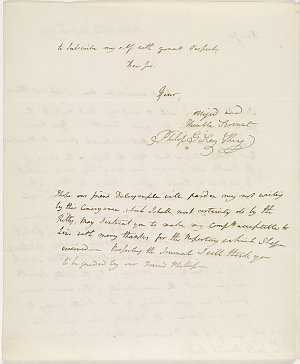 to subscribe my self with great Respect
Dear Sir
Your,
obliged and
Humble Servant
Philip G King
I hope our friend Dalrymple will pardon my not writing
by this Conveyance, which I shall most certainly do by the
May I intreat you to make my Compts acceptable to
him with many thanks for the Repertory which I
received — Respecting the Journal I will thank you
to be guided by our Friend